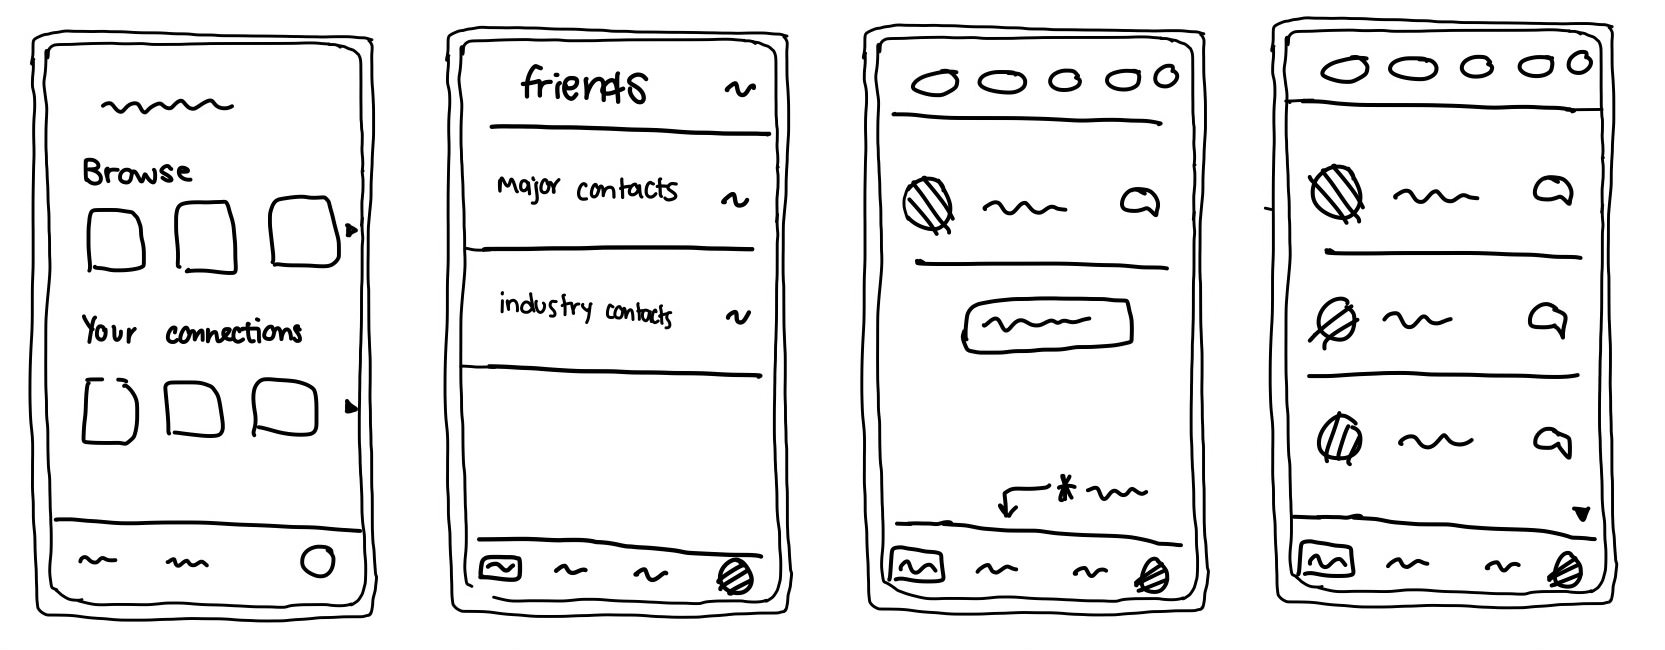 Browse
Your connections
friends
Major contacts
industry contacts
*